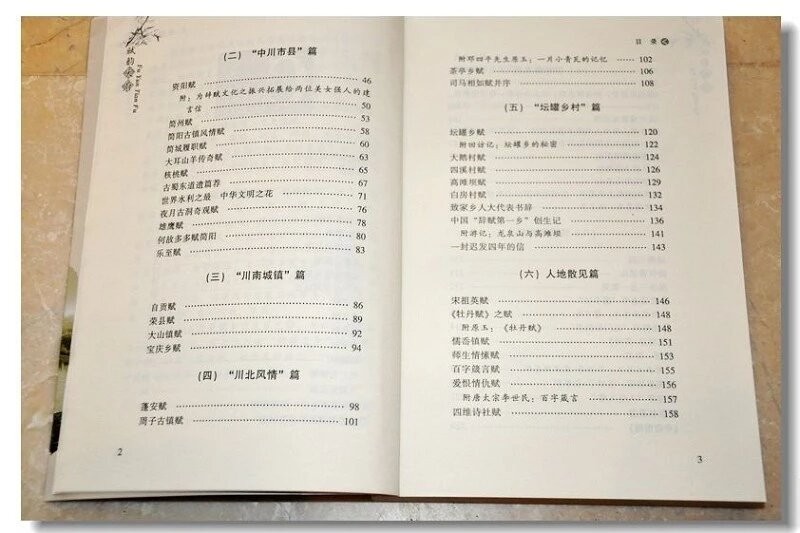 Fu Yun Tian Fu
(二) “中川市县” 篇
资阳赋 46
附：为辞赋文化之振兴拓展给两位美女强人的建
言信 50
简州赋 53
简阳古镇风情赋 58
简城履职赋 60
大耳山羊传奇赋 63
核桃赋 65
古蜀东道遗篇荐 67
世界水利之最 中华文明之花 71
夜月古洞奇观赋 76
雄鹰赋 78
何故多多赋简阳 80
乐至赋 83
(三) “川南城镇” 篇
自贡赋 86
荣县赋 89
大山镇赋 92
宝庆乡赋 94
(四) “川北风情” 篇
蓬安赋 98
周子古镇赋 101
2
目录
附邓四平先生原玉：一月小青瓦的记忆 102
茶亭乡赋 106
司马相如赋并序 108
(五) “坛罐乡村” 篇
坛罐乡赋 120
附回访记：坛罐乡的秘密 122
大鹅村赋 124
四溪村赋 126
高滩坝赋 129
白房村赋 132
致家乡人大代表书辞 134
中国“辞赋第一乡”创生记 136
附游记：龙泉山与高滩坝 141
一封迟发四年的信 143
(六) 人地散见篇
宋祖英赋 146
《牡丹赋》之赋 148
附原玉：《牡丹赋》 148
儒斋镇赋 151
师生情愫赋 153
百字箴言赋 155
爱恨情仇赋 156
附唐太宗李世民：百字箴言 157
四维诗社赋 158
3